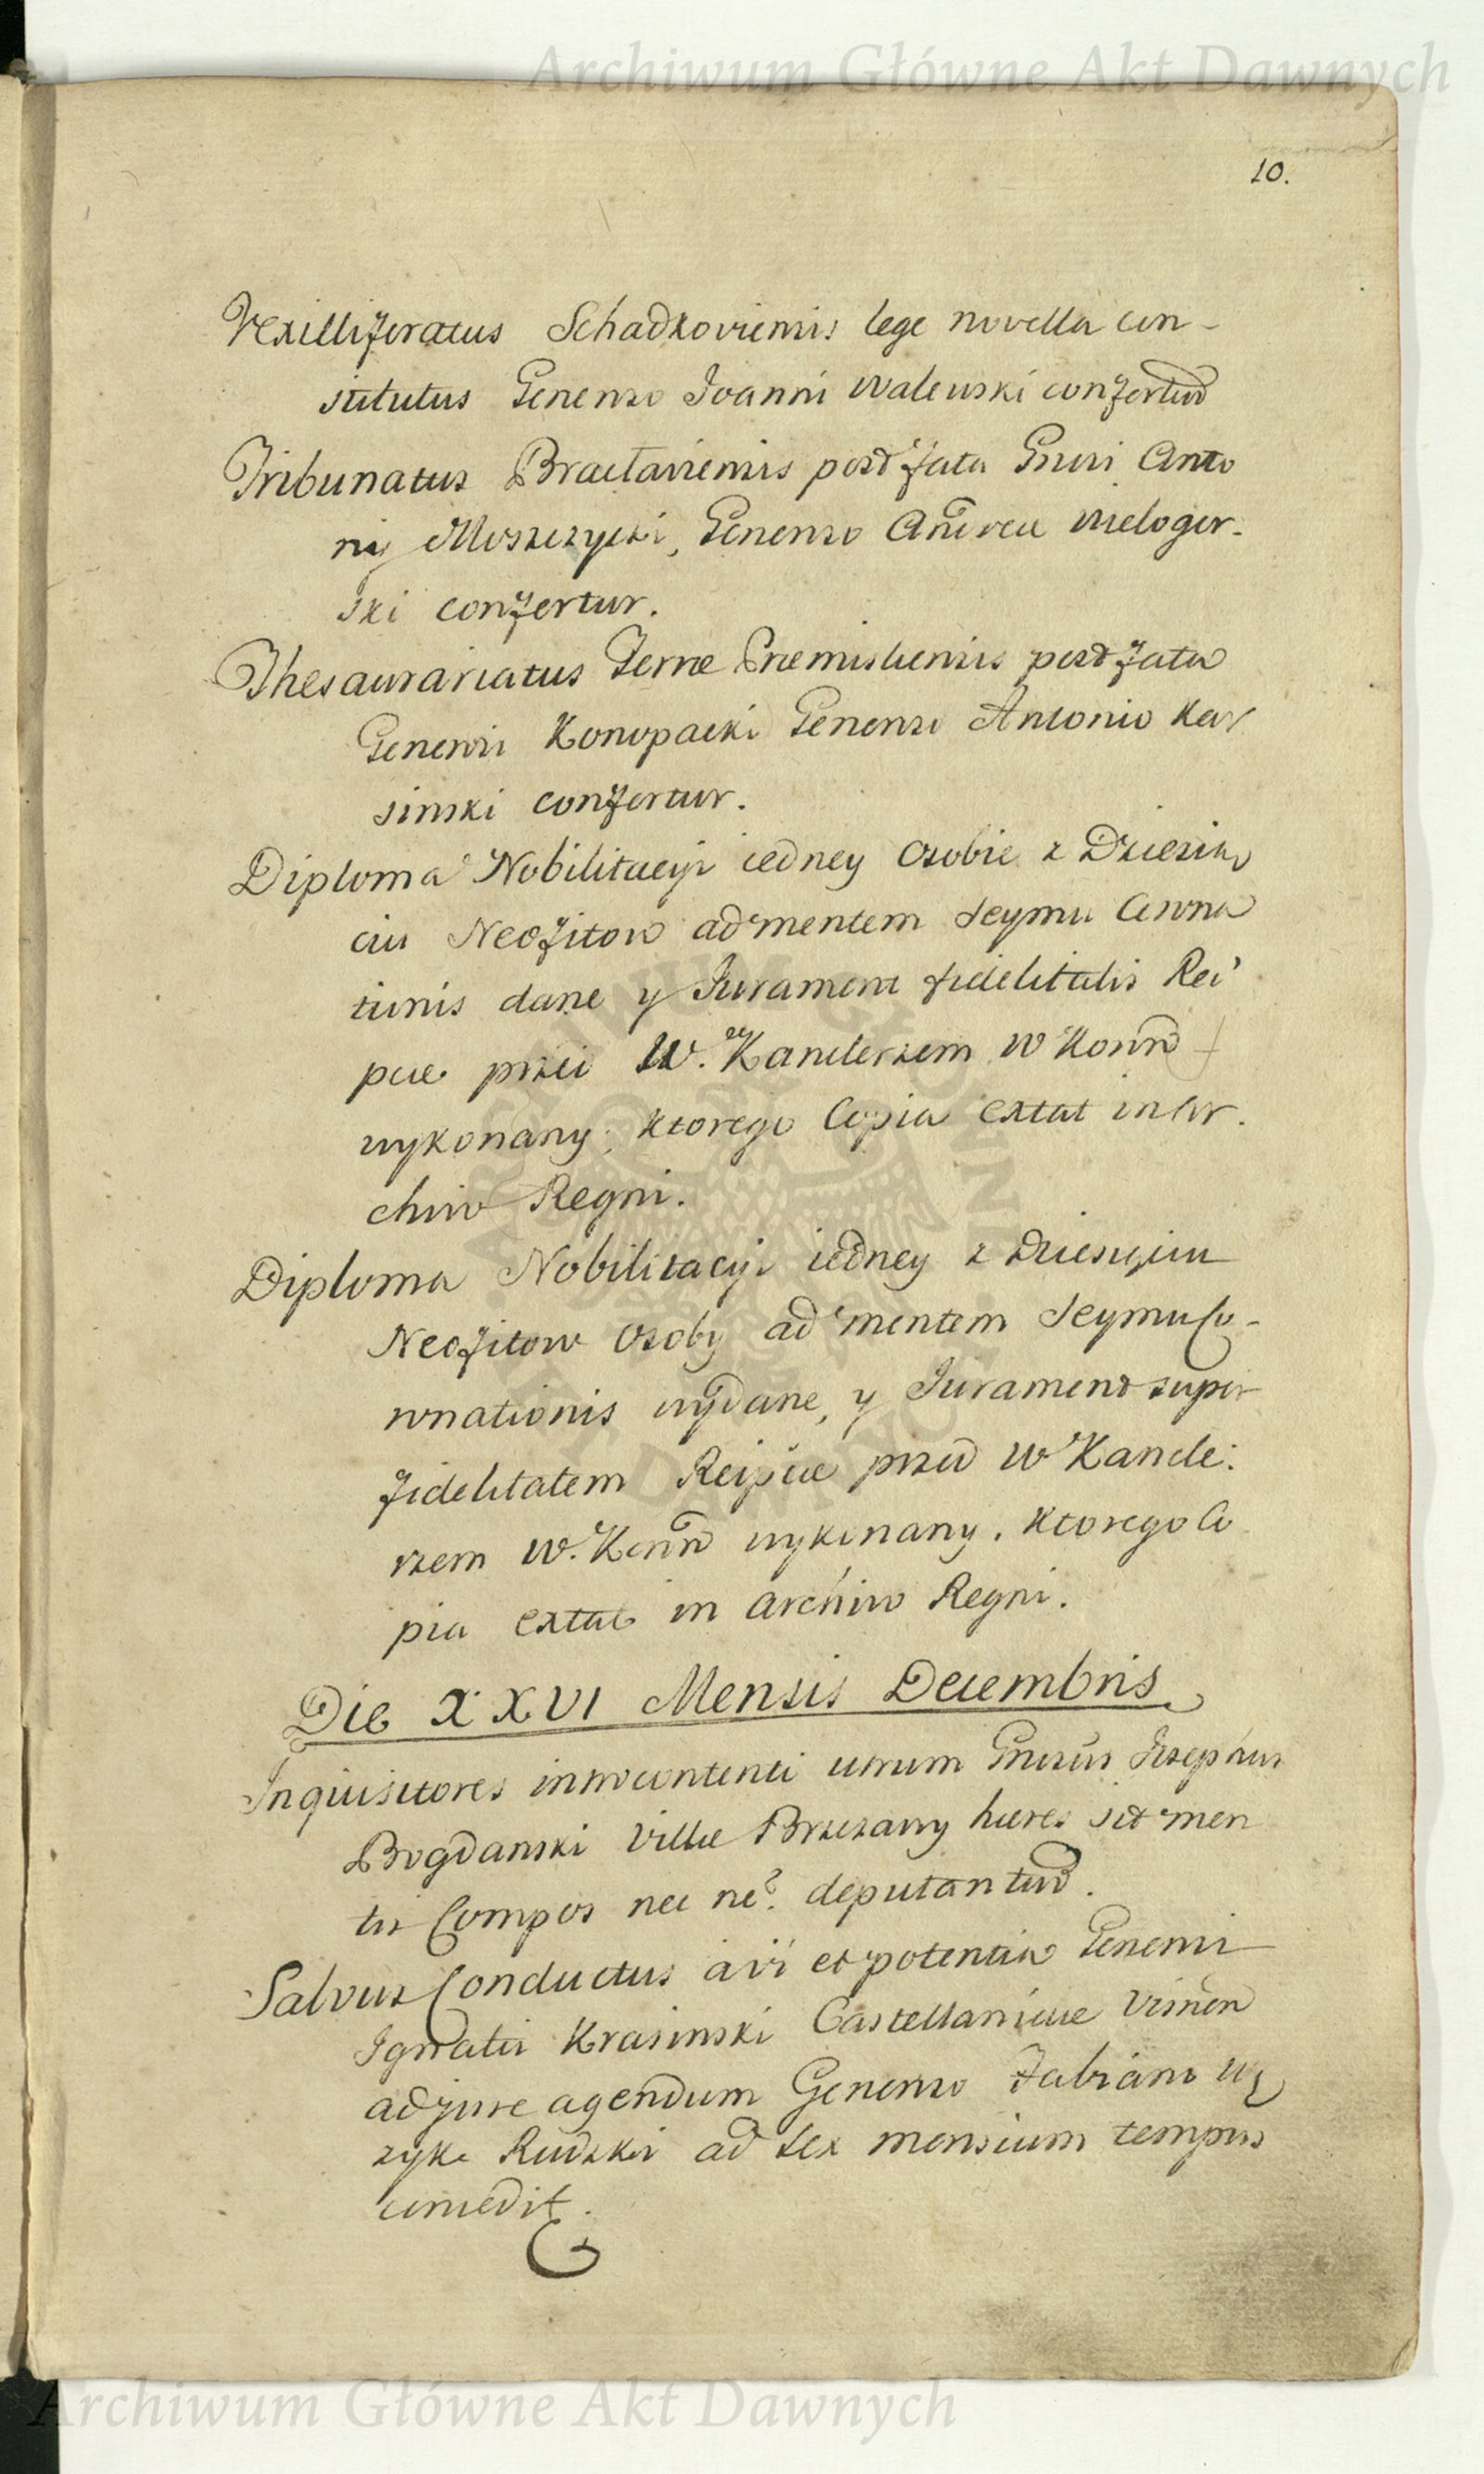 Archiwum Główne Akt Dawnych
10.
Vexilliferatus Schadkoviensis lege novella con-
stitutus Generoso Joanni Walewski confertur
Tribunatus Braclaviensis post fata Gnrsi Anto
nij Moszczycki, Generoso Andreae Wielogor-
ski confertur.
Thesaurariatus Terrae Praemisliensis post fata
Generosi Konopacki Generoso Antonio Kar
sinski confertur.
Diploma Nobilitacyi iedney Osobie z Dziesię
ciu Neofitow ad mentem Seymu Corona
tionis dane y Jurament fidelitatis Rei
pcae przed W. Kanclerzem W Konñ
wykonany, ktorego Copia extat in Ar.
chivo Regni.
Diploma Nobilitacyi iedney z Dziesięciu
Neofitow Osoby ad mentem Seymu Co-
ronationis wydane, y Jurament super
fidelitatem Reipcae przed W Kancle:
rzem W. Konñ wykonany. ktorego Co
pia extat in Archivo Regni.
Die XXVI Mensis Decembris
Inquisitores introcontenti utrum Gnrsus Josephus
Bogdanski Villae Brzezany haeres sit men
tis Compos nec ne? deputantur.
Salvus Conductus a vi et potentia Generosi
Ignatii Krasinski Castellanidae Visnen
ad jure agendum Generoso Fabiano Wy
zyk Rudzki ad sex mensium tempus
conceditur.
Archiwum Główne Akt Dawnych